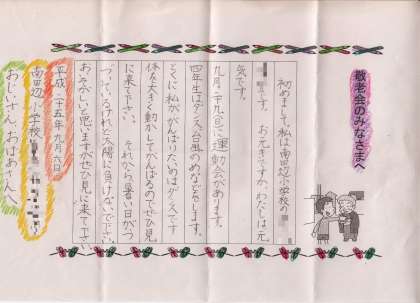 敬老会のみなさまへ
初めまして私は南田辺小学校の
です。お元気ですか。わたしは元
気です。
九月二十九(日)に運動会があります。
四年生はダンス、台風のめなどをします。
とくに私ががんばりたいのはダンスです
体を大きく動かしてがんばるのでぜひ見
に来て下さい。それから暑い日がつ
づいているけれど太陽に負けないで下さい。
おいそがしいと思いますがぜひ見に来て下さい
平成二十五年九月六日
南田辺小学校
おじいさん、おばあさんへ